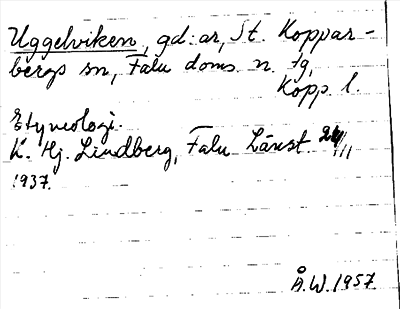 Uggelviken, gd:ar, St. Koppar-
bergs sn, Falu doms. n. tg,
Kopp. l.
Etymologi.
K. Hj. Lindberg, Falu Länst. 24/11
1937.
Å.W. 1957